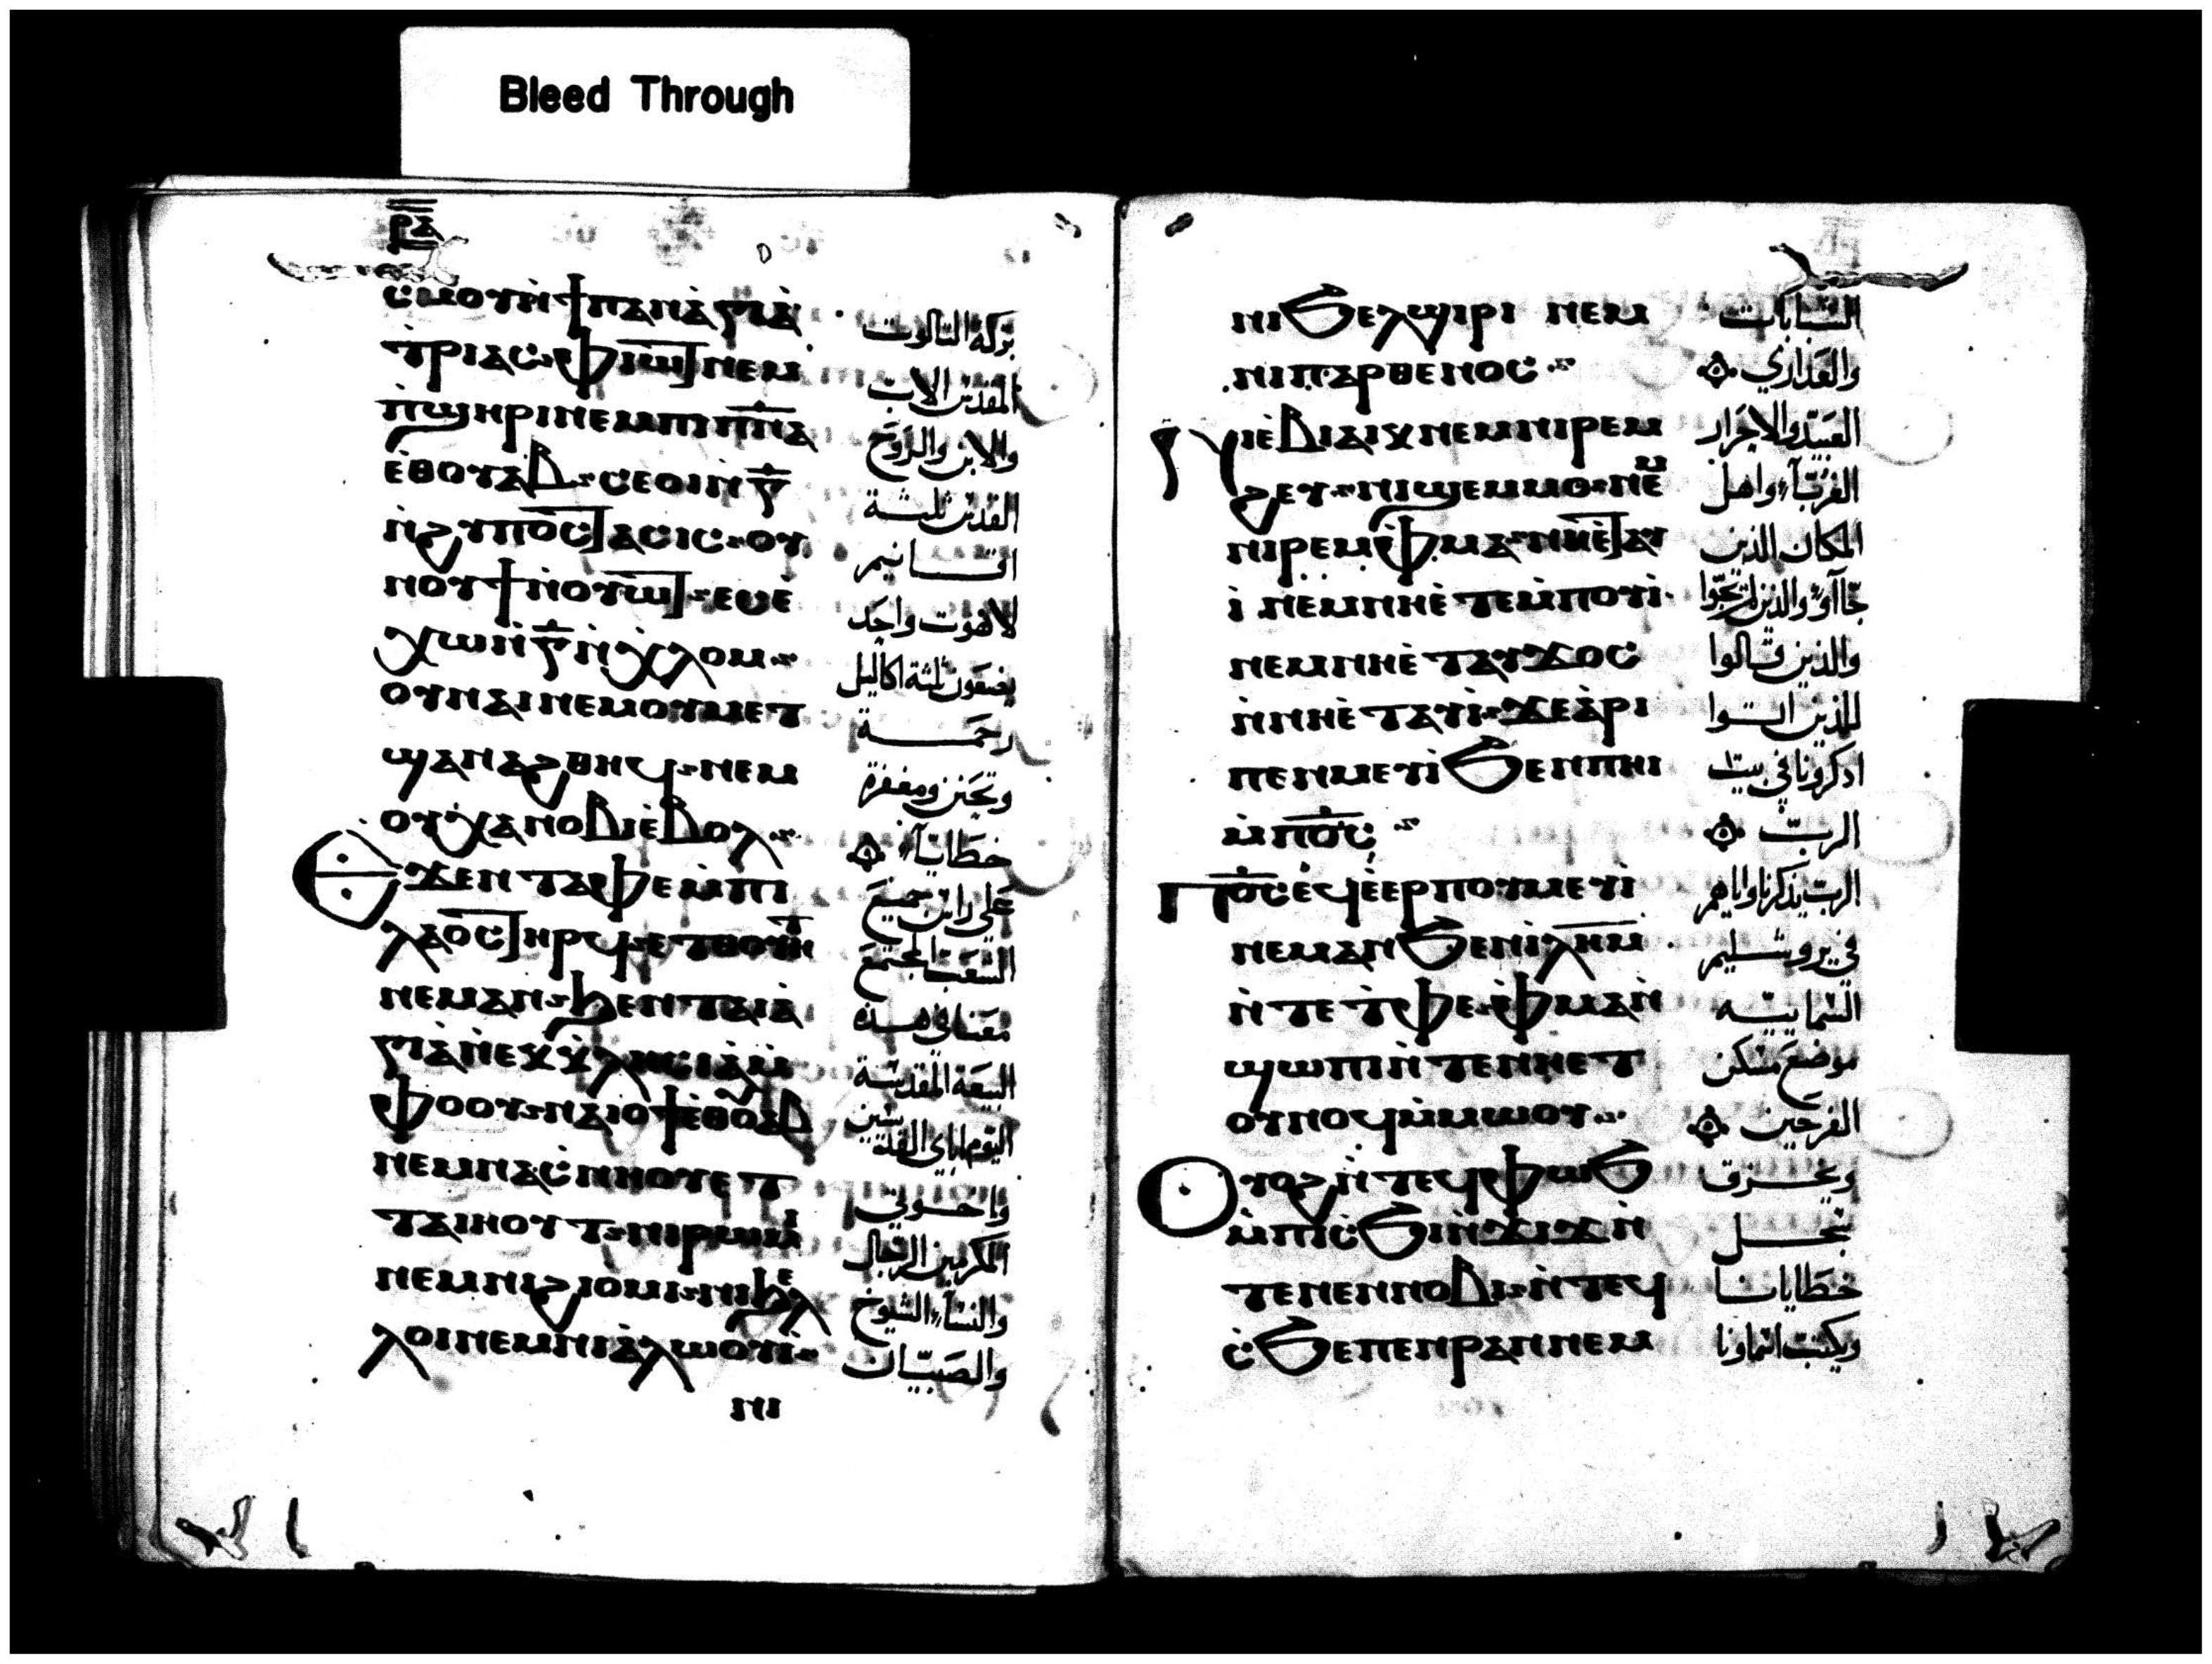 Bleed Through
ⲣⲁ
ⲥⲙⲟⲩ ⲛ̀ϯⲡⲁⲛⲁ̀ⲅⲓⲁ̀ بركة الثالوت
ⲧ̀ⲣⲓⲁⲥ ⲫ̀ⲓⲱⲧ ⲛⲉⲙ المقدس الاب
ⲡ̀ϣⲏⲣⲓ ⲛⲉⲙ ⲡⲓⲡ̅ⲛ̅ⲁ والابن والروح
ⲉ̀ⲑⲟⲩⲁⲃ ⲥⲉⲟⲓ ⲛ̀ⲅ̅ القدس ثلثة
ⲛ̀ϩⲩⲡⲟⲥⲧⲁⲥⲓⲥ ⲟⲩ اقانيم
ⲛⲟⲩϯ ⲛ̀ⲟⲩⲱⲧ ⲉⲩⲉ̀ لاهوت واحد
ⲭⲱ ⲛ̀ⲅ̅ ⲛ̀ⲭ̀ⲗⲟⲙ يضعون ثلثة اكاليل
ⲟⲩⲛⲁⲓ ⲛⲉⲙ ⲟⲩⲙⲉⲧ رحمة
ϣⲁⲛⲁϩⲑⲏϥ ⲛⲉⲙ وتحنن ومغفرة
ⲟⲩⲭⲁ ⲛⲟⲃⲓ ⲉ̀ⲃⲟⲗ خطايا
ⲉϫⲉⲛ ⲧⲁⲫⲉ ⲙ̀ⲡⲓ على راس جميع
ⲗⲁⲟⲥ ⲧⲏⲣϥ ⲉⲧⲑⲟⲩⲏⲧ الشعب المجتمع
ⲛⲉⲙⲁⲛ ϧⲉⲛ ⲧⲁⲓⲁ̀ معنا في هذه
ⲅⲓⲁ̀ ⲛ̀ⲉⲕⲕ̀ⲗⲏⲥⲓⲁ̀ ⲙ̀ البيعة المقدسة
ⲫⲟⲟⲩ ⲛⲁⲓⲟϯ ⲉ̀ⲑⲟⲁⲃ اليوم اباي القديسين
ⲛⲉⲙ ⲛⲁⲥ̀ⲛⲏⲟⲩ ⲉⲧ واخوتي
ⲧⲁⲓⲏⲟⲩⲧ ⲛⲓⲣⲱⲙⲓ المكرمين الرجال
ⲛⲉⲙ ⲛⲓϩⲓⲟⲙⲓ ⲛⲓϧⲉⲗ والنساء الشيوخ
ⲗⲟⲓ ⲛⲉⲙ ⲛⲓⲁ̀ⲗⲱⲟⲩⲓ̀ والصبيان
ⲛⲓ
ⲛⲓϧⲉⲗϣⲓⲣⲓ ⲛⲉⲙ الشابات
ⲛⲓⲡⲁⲣⲑⲉⲛⲟⲥ والعداري
ⲛⲓⲉ̀ⲃⲓⲁⲓⲕ ⲛⲉⲙ ⲛⲓⲣⲉⲙ العبيد والاحرار
ϩⲉⲩ ⲛⲓϣⲉⲙⲙⲟ ⲛⲉⲙ الغرباء واهل
ⲛⲓⲣⲉⲙⲫ̀ⲙⲁ ⲛⲏⲉ̀ⲧⲁⲩ المكان الذين
ⲓ̀ ⲛⲉⲙ ⲛⲏⲉ̀ⲧⲉⲙ̀ⲡⲟⲩⲓ̀ جاآوا والذين لم يجوا
ⲛⲉⲙ ⲛⲏⲉ̀ⲧⲁⲩϫⲟⲥ والذين قالوا
ⲛ̀ⲛⲏⲉ̀ⲧⲁⲩⲓ̀ ϫⲉ ⲁ̀ⲣⲓ للذين اتوا
ⲡⲉⲛⲙⲉⲩⲓ̀ ϧⲉⲛ ⲡⲏⲓ ادكرونا في بيت
ⲙ̀ⲡⲟ̅ⲥ̅ الرب
ⲡⲟ̅ⲥ̅ ⲉϥⲉ̀ⲉⲣⲡⲟⲩⲙⲉⲩⲓ̀ الرب يذكرنا واياهم
ⲛⲉⲙⲁⲛ ϧⲉⲛ ⲓ̀ⲗ̅ⲏ̅ⲙ̅ في يروشليم
ⲛ̀ⲧⲉ ⲧ̀ⲫⲉ ⲫ̀ⲙⲁ ⲛ̀ السمايية
ϣⲱⲡⲓ ⲛ̀ⲧⲉ ⲛⲏⲉⲧ موضع مسكن
ⲟⲩⲛⲟϥ ⲙ̀ⲙⲱⲟⲩ الفرحين
ⲟⲩⲟϩ ⲛ̀ⲧⲉϥⲫⲱϧ ويخرق
ⲙ̀ⲡⲓⲥϧⲓⲛ̀ϫⲓϫ ⲛ̀ سجل
ⲧⲉ ⲛⲉⲛⲛⲟⲃⲓ ⲛ̀ⲧⲉϥ خطايانا
ⲥ̀ϧⲉ ⲡⲉⲛⲣⲁⲛ ⲛⲉⲙ ويكتب اسماونا